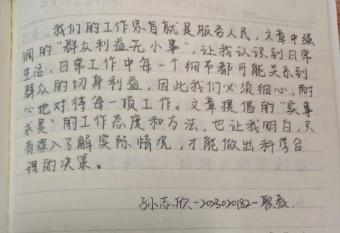 我们的工作宗旨就是服务人民,文章中强
调的"群众利益无小事",让我认识到日常
生活,日常工作中每一个细节都可能关系到
群众的切身利益,因此我们必须细心、耐
心地对待每一项工作。文章提倡的"实事
求是"的工作态度和方法,也让我明白,只
有深入了解实际情况,才能做出科学合
理的决策。
孙志欣-2023020182-职教